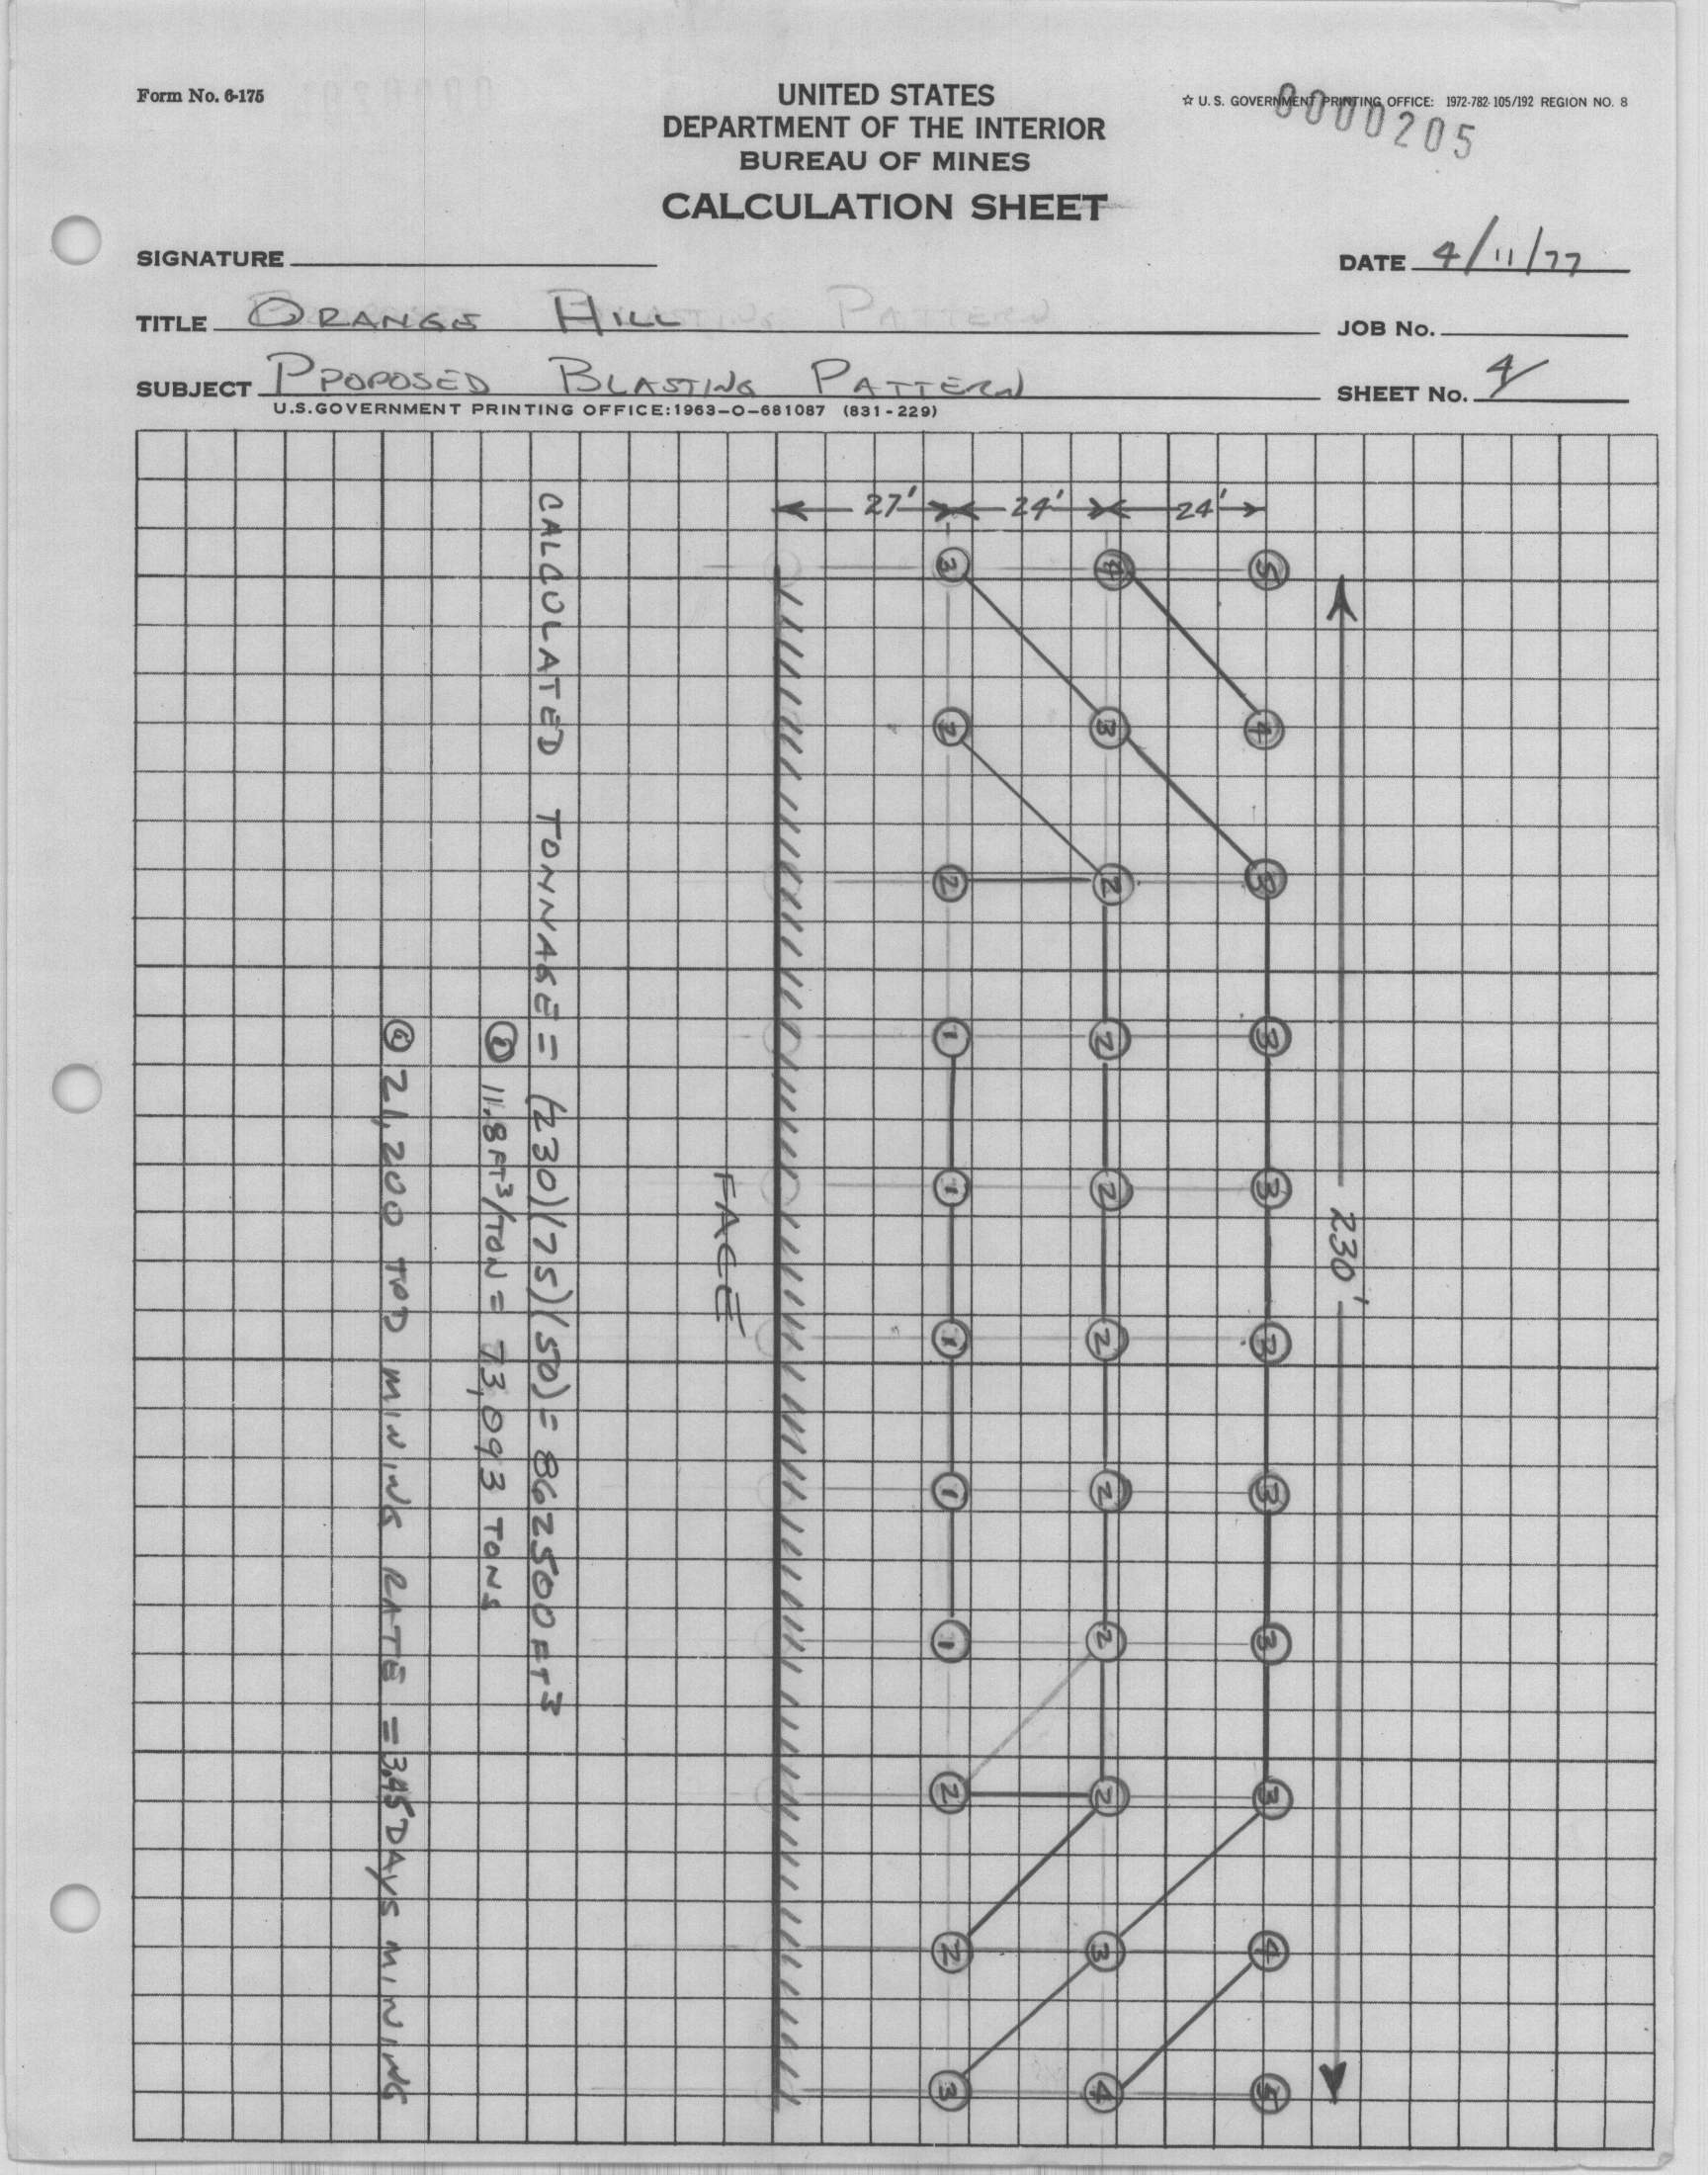 Form No. 6-175
UNITED STATES
DEPARTMENT OF THE INTERIOR
BUREAU OF MINES
CALCULATION SHEET
☆ U. S. GOVERNMENT PRINTING OFFICE: 1972-782-105/192 REGION NO. 8
0000205
SIGNATURE
DATE 4/11/77
TITLE ORANGE HILL
JOB No.
SUBJECT PROPOSED BLASTING PATTERN
SHEET No. 4
U.S.GOVERNMENT PRINTING OFFICE:1963-O-681087 (831-229)
27' 24' 24'
3 4 5
2 3 4
2 2 3
1 2 3
1 2 3
1 2 3
1 2 3
1 2 3
2 2 3
2 3 4
3 4 5
230'
FACE
CALCULATED TONNAGE = (230)(75)(50) = 862500 FT³
@ 11.8 FT³/TON = 73,093 TONS
@ 21,200 TPD MINING RATE = 3.45 DAYS MINING